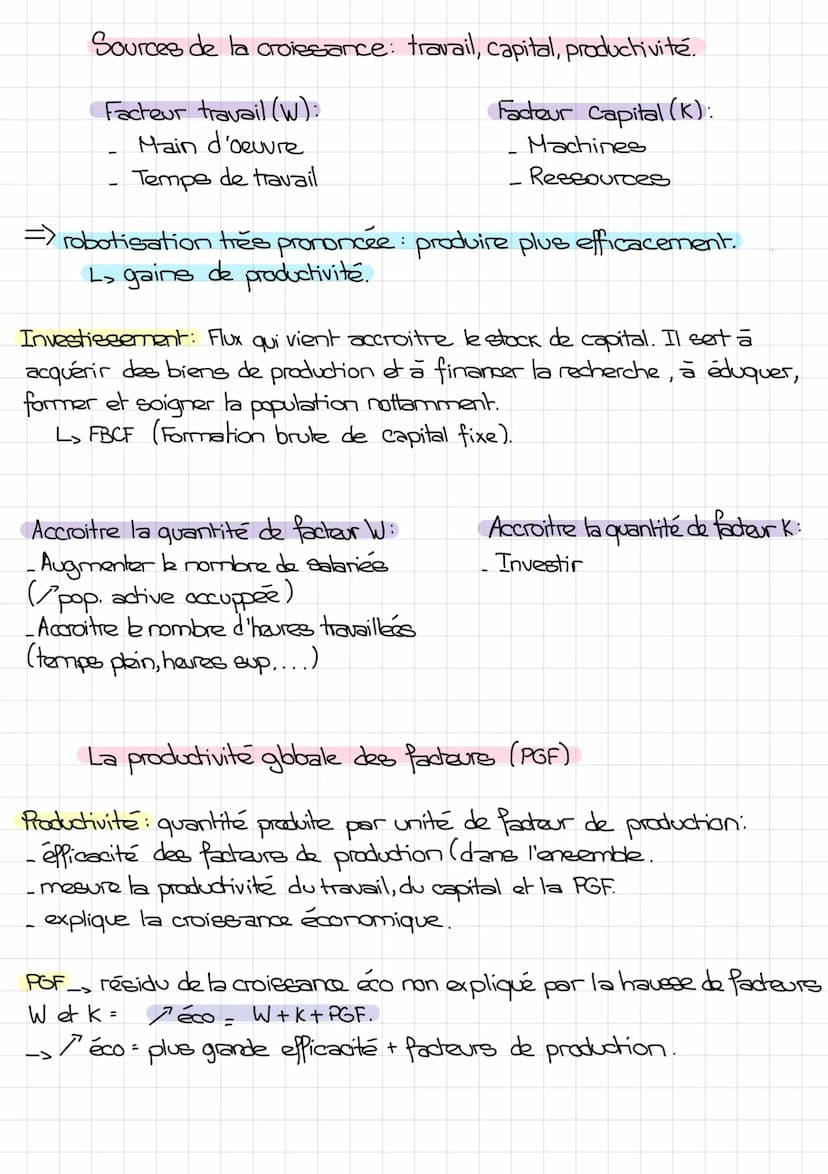 Sources de la croissance: travail, capital, productivité.
Facteur travail (W):
- Main d'oeuvre
- Temps de travail
Facteur Capital (K):
- Machines
- Ressources
=> robotisation très prononcée : produire plus efficacement.
↳ gains de productivité.
Investissement: Flux qui vient accroitre le stock de capital. Il sert à
acquérir des biens de production et à financer la recherche, à éduquer,
former et soigner la population nottamment.
↳ FBCF (Formation brute de capital fixe).
Accroitre la quantité de facteur W:
- Augmenter le nombre de salariés
(↗pop. active occuppée)
- Accroitre le nombre d'heures travaillées
(temps plein, heures sup,....)
Accroitre la quantité de facteur K:
- Investir
La productivité globale des facteurs (PGF)
Productivité: quantité produite par unité de facteur de production:
- éfficacité des facteurs de production (dans l'ensemble.
- mesure la productivité du travail, du capital et la PGF.
- explique la croissance économique.
PGF → résidu de la croissance éco non expliqué par la hausse de facteurs
W et K = ↗ éco = W + K + PGF.
→ ↗ éco = plus grande efficacité + facteurs de production.